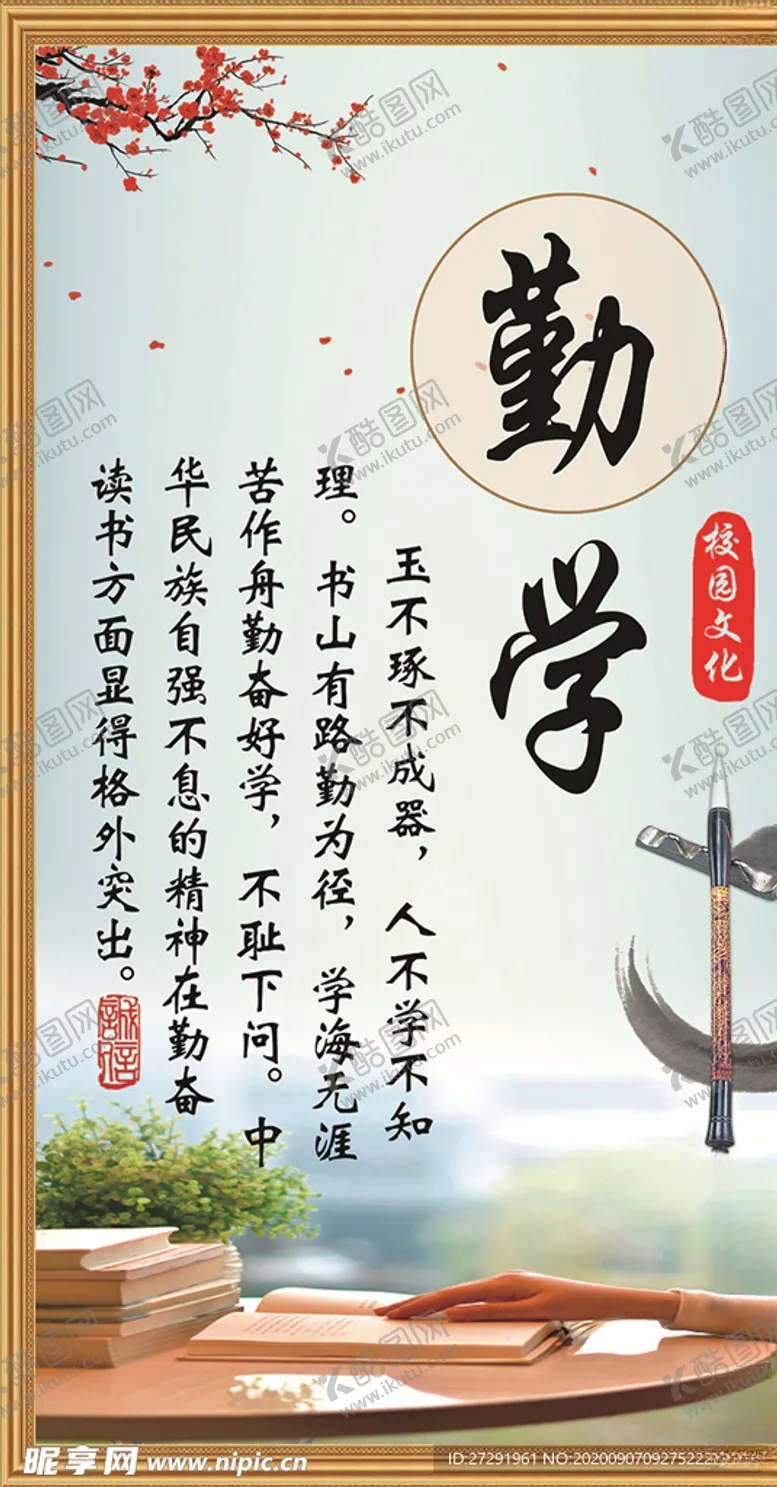 勤学
校园文化
玉不琢不成器，人不学不知
理。书山有路勤为径，学海无涯
苦作舟勤奋好学，不耻下问。中
华民族自强不息的精神在勤奋
读书方面显得格外突出。
誠信
酷图网
www.ikutu.com
昵享网 www.nipic.cn